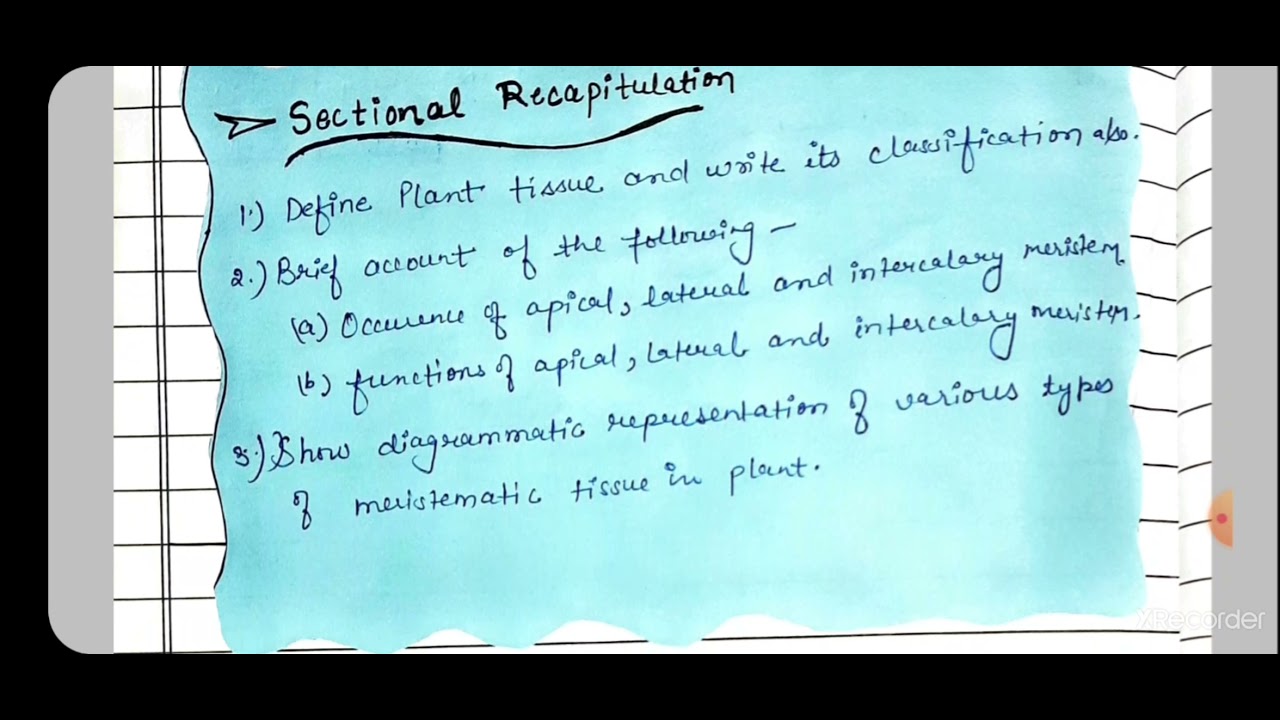 Sectional Recapitulation
1.) Define Plant tissue and write its classification also.
2.) Brief account of the following -
(a) Occurence of apical, lateral and intercalary meristem
(b) functions of apical, lateral and intercalary meristem.
3.) Show diagrammatic representation of various types
of meristematic tissue in plant.
XRecorder